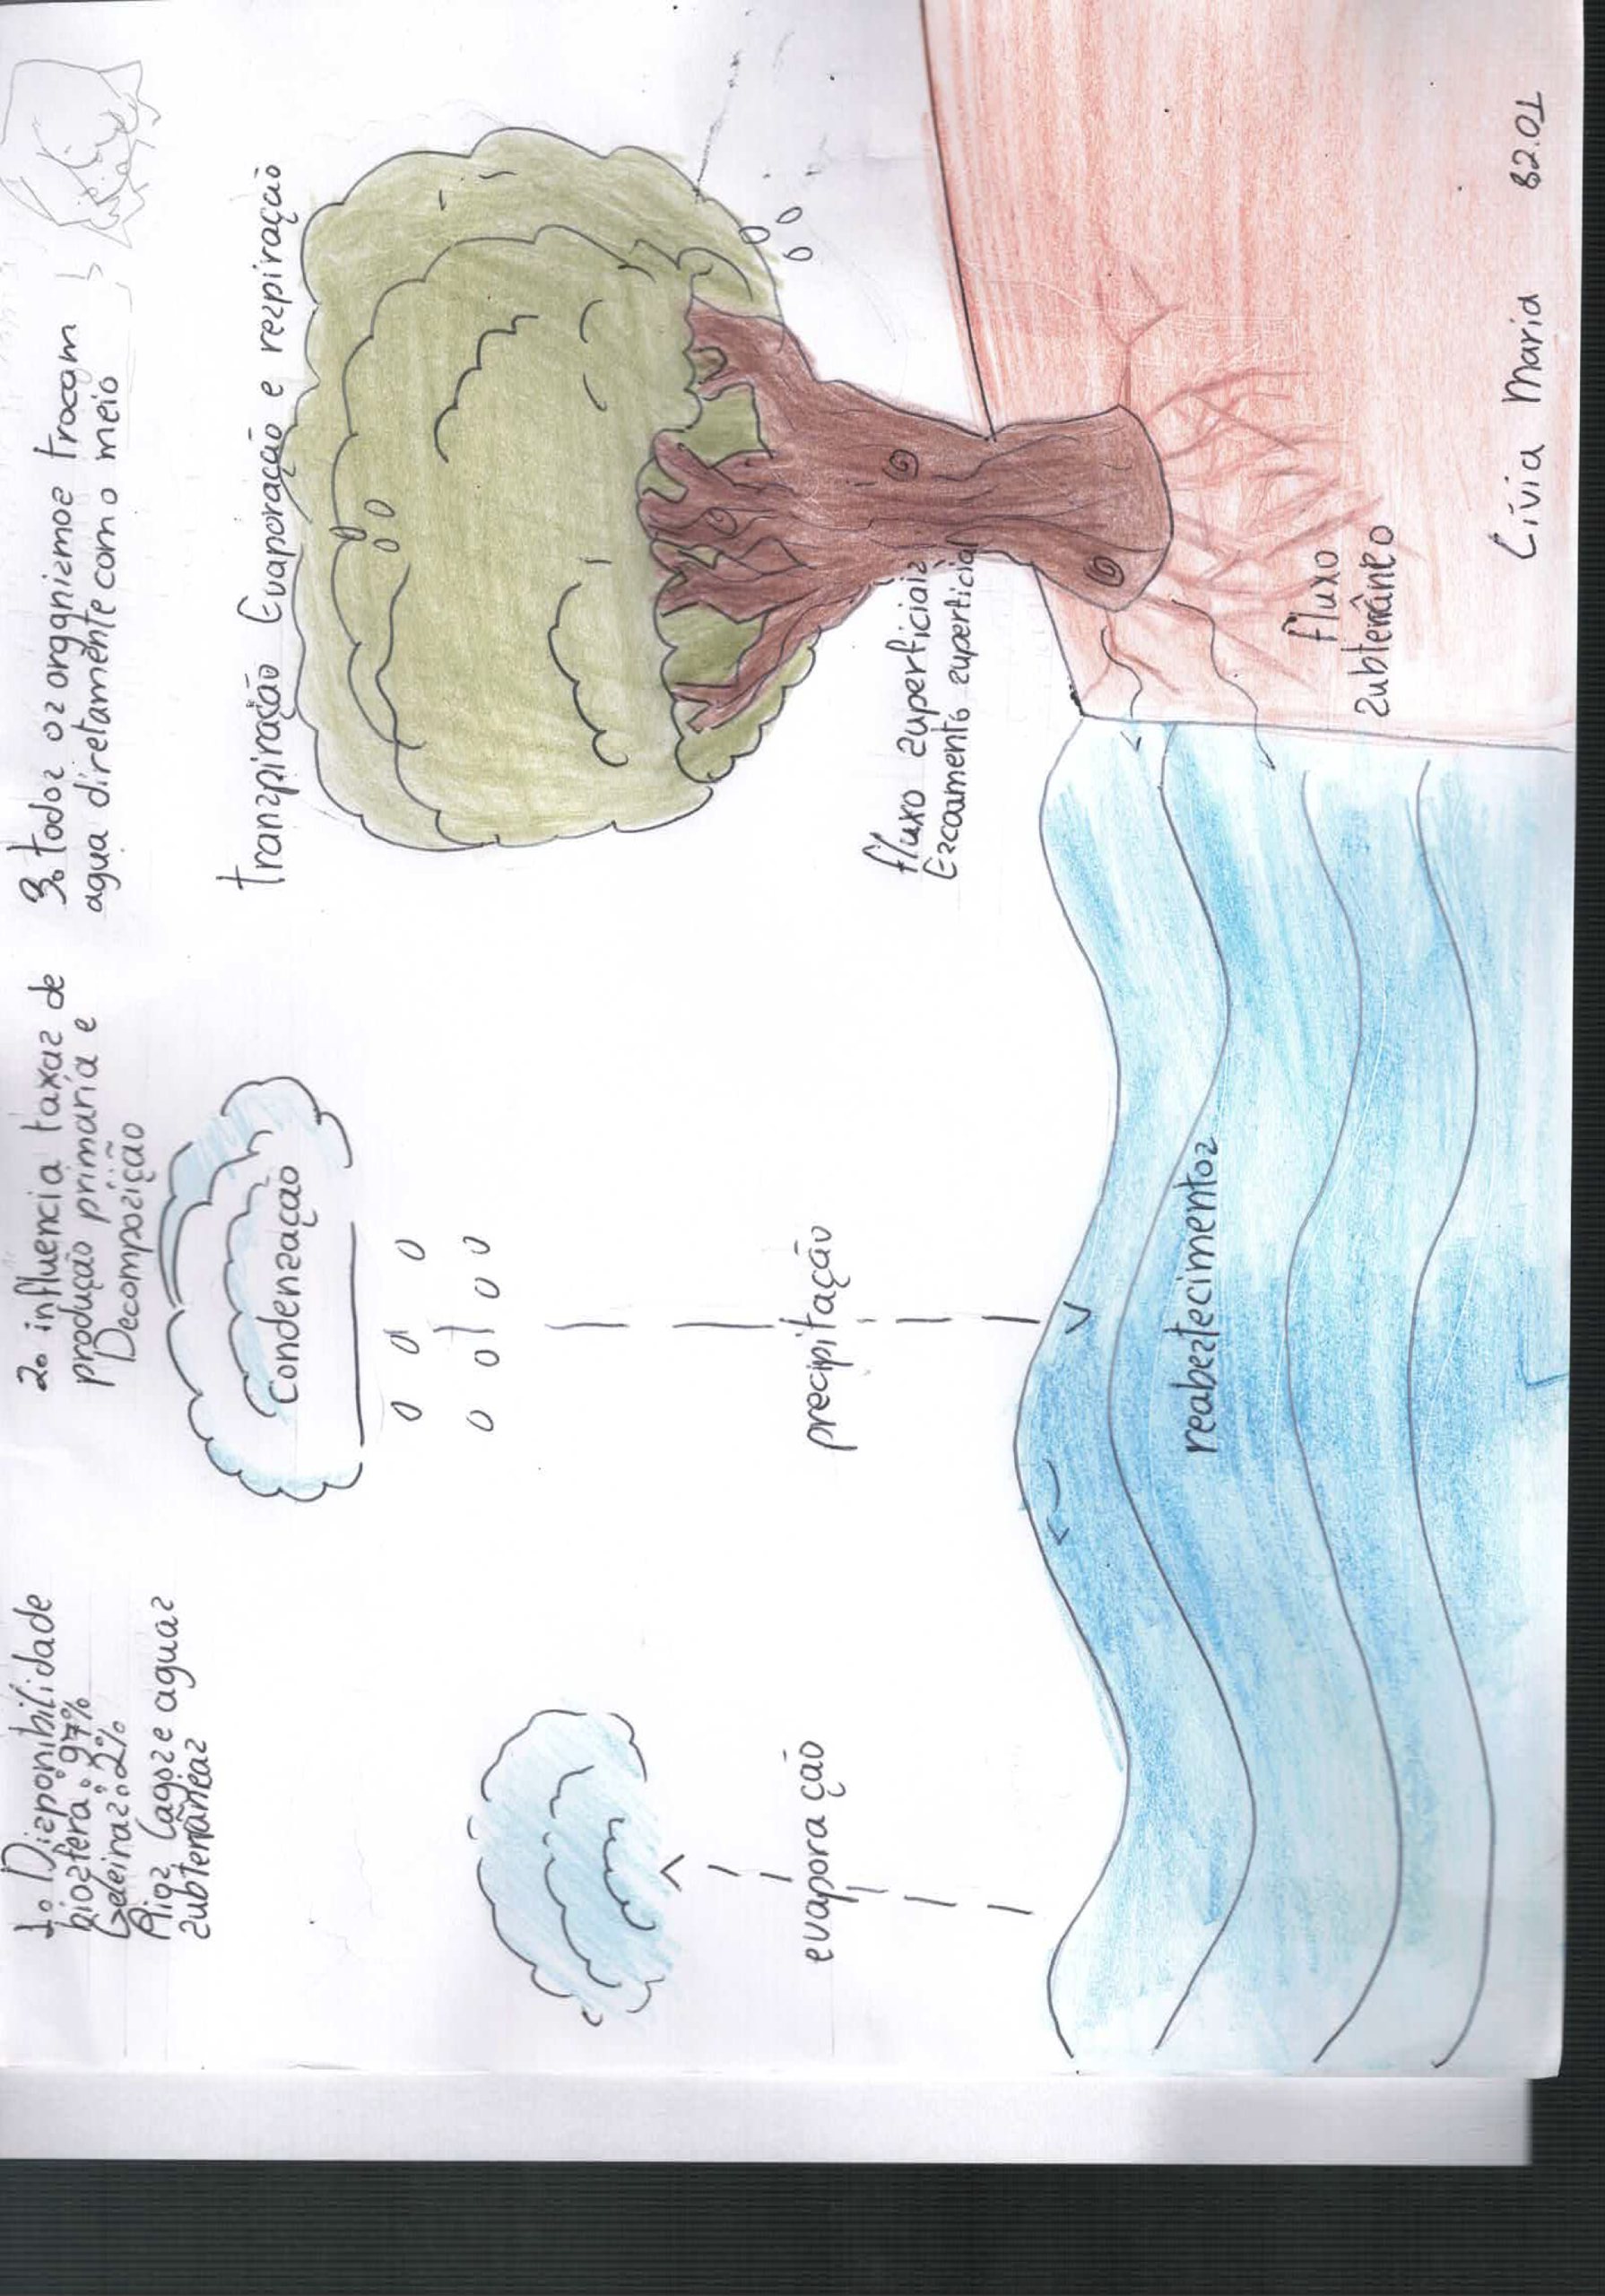 1. Disponibilidade
biosfera: 97%
Geleiras: 2%
Rios Lagos e aguas
subterrâneas
2. influencia taxas de
produção primaria e
Decomposição
3. todos os organismos trocam
agua diretamente com o meio
transpiração Evaporação e respiração
Condensação
evaporação
precipitação
fluxo superficiais
Escoamento superficial
reabestecimentos
fluxo
subterrâneo
Lívia Maria 82.01